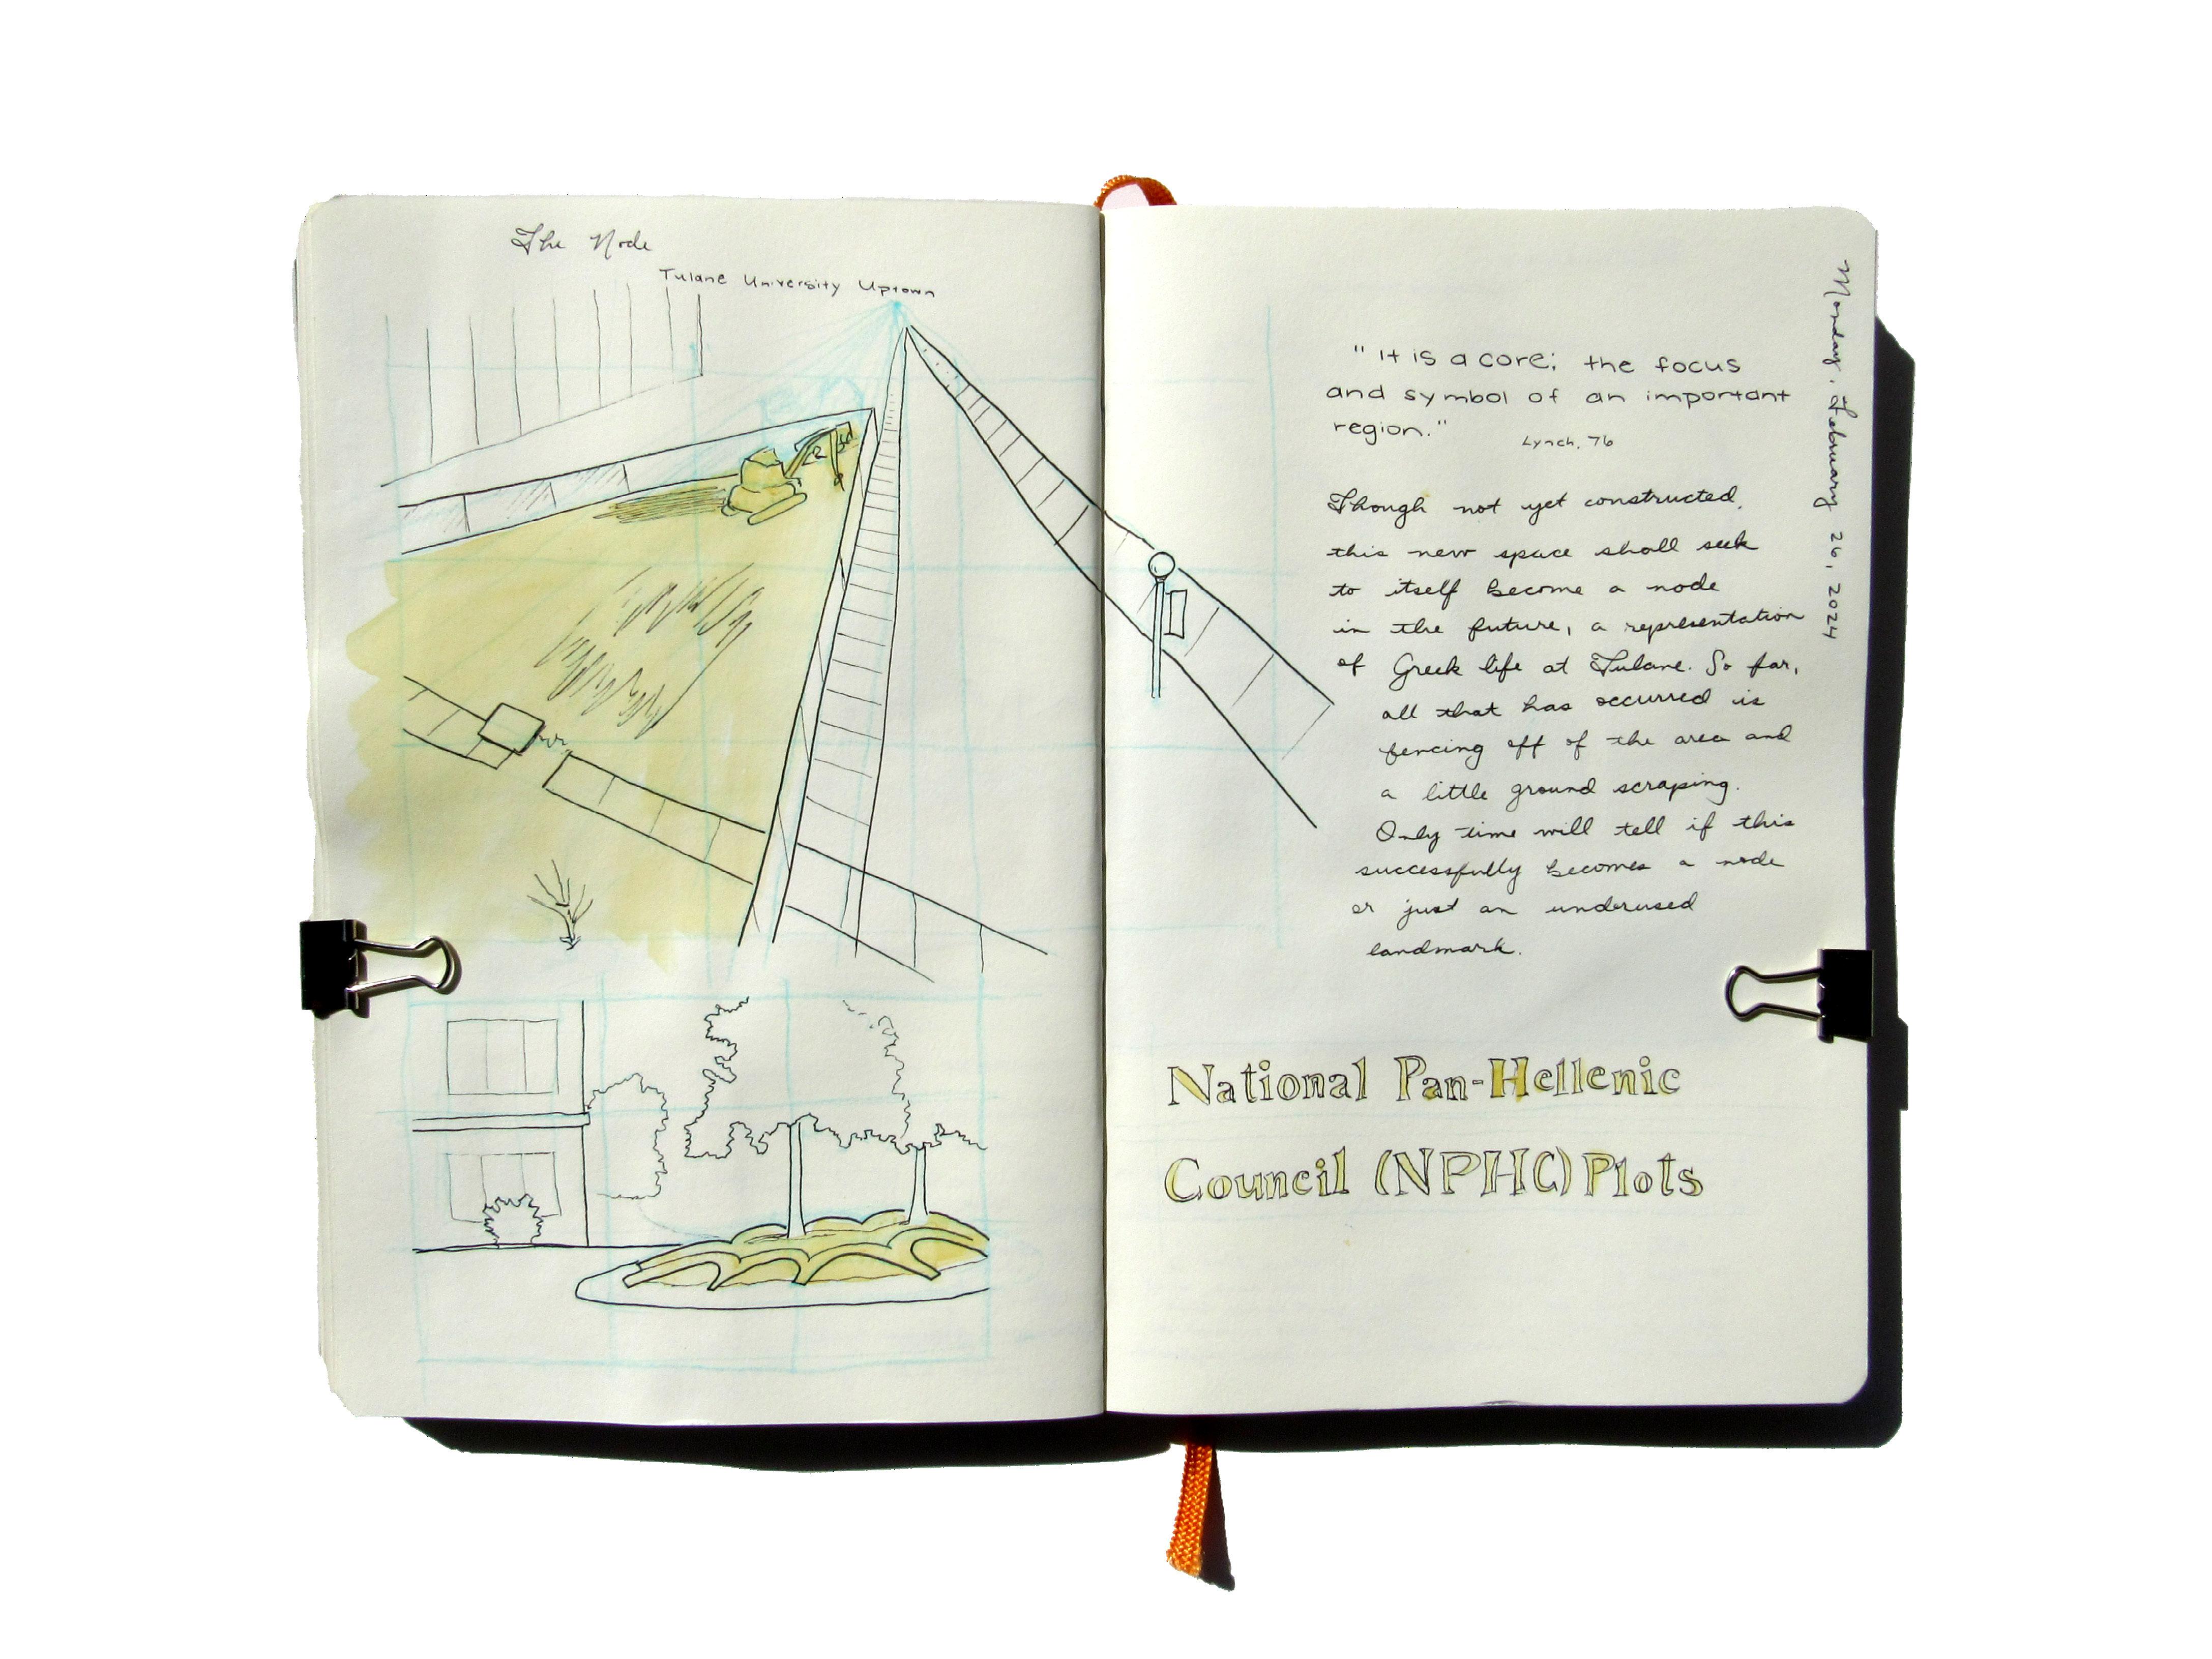 The Node
Tulane University Uptown
"It is a core; the focus
and symbol of an important
region."
Lynch, 76
Though not yet constructed,
this new space shall seek
to itself become a node
in the future, a representation
of Greek life at Tulane. So far,
all that has occurred is
fencing off of the area and
a little ground scraping.
Only time will tell if this
successfully becomes a node
or just an underused
landmark.
Monday, February 26, 2024
National Pan-Hellenic
Council (NPHC) Plots